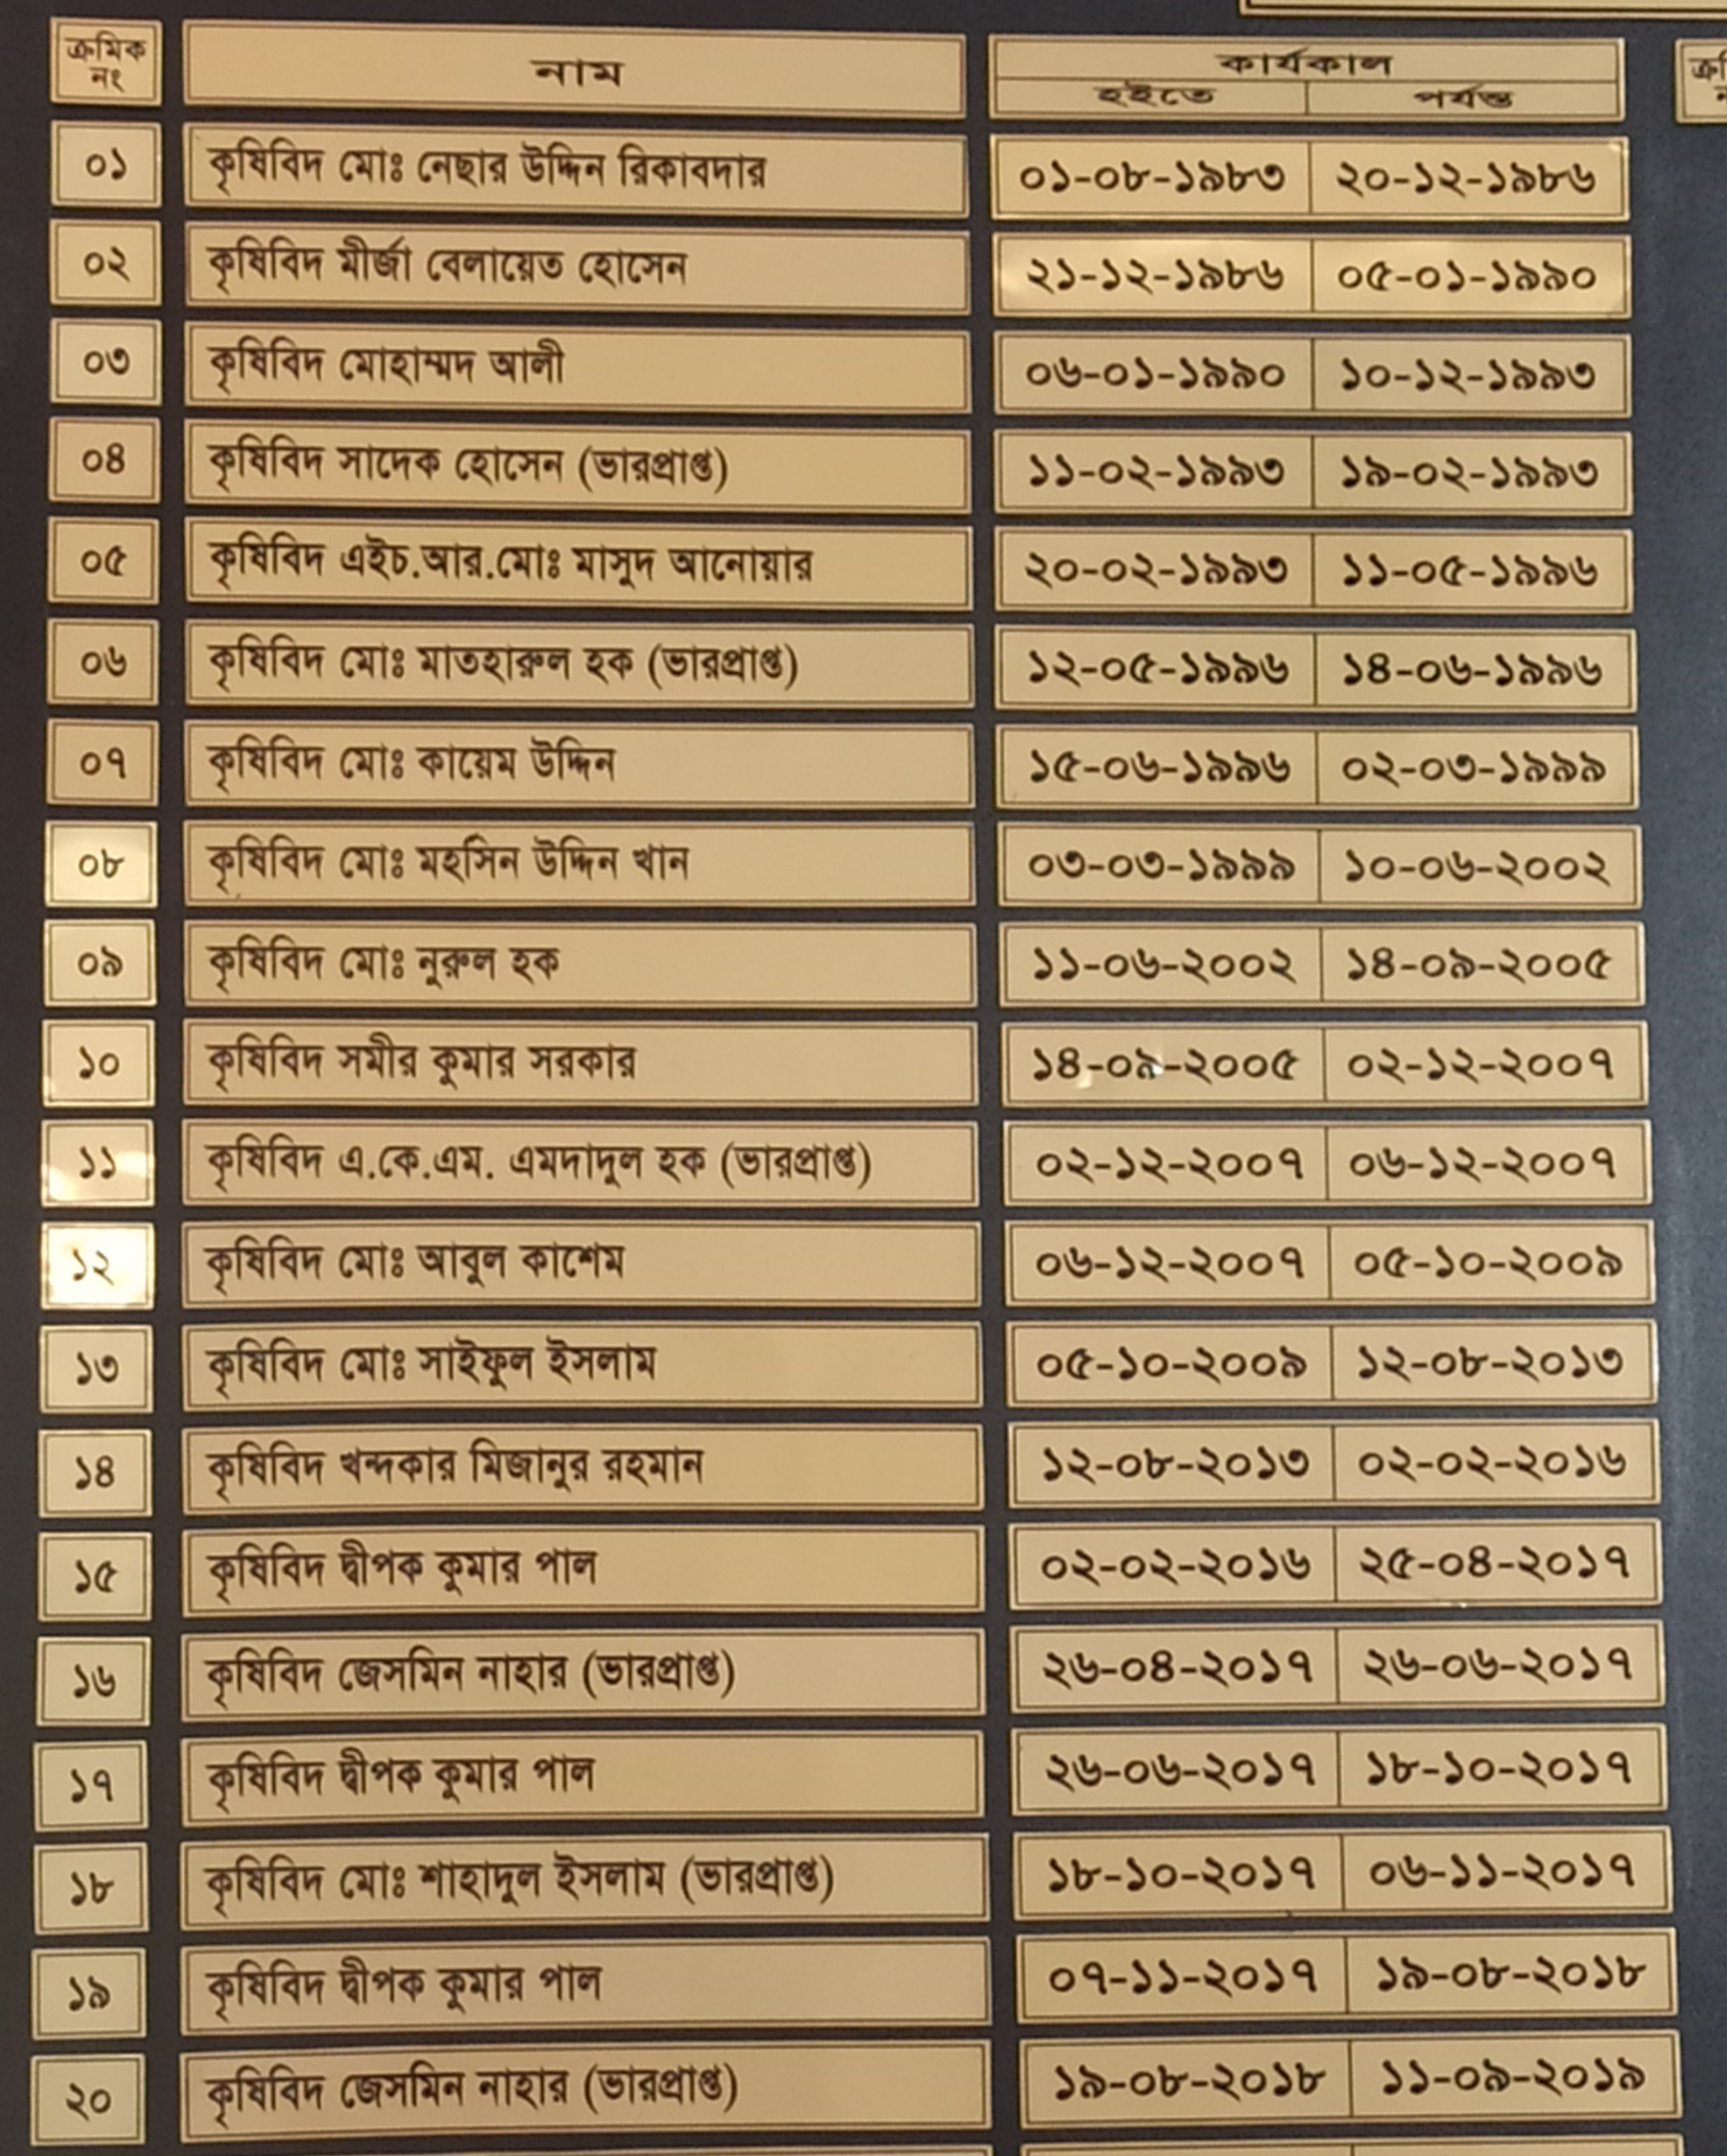 ক্রমিক নং নাম কার্যকাল
হইতে পর্যন্ত
০১ কৃষিবিদ মোঃ নেছার উদ্দিন রিকাবদার ০১-০৮-১৯৮৩ ২০-১২-১৯৮৬
০২ কৃষিবিদ মীর্জা বেলায়েত হোসেন ২১-১২-১৯৮৬ ০৫-০১-১৯৯০
০৩ কৃষিবিদ মোহাম্মদ আলী ০৬-০১-১৯৯০ ১০-১২-১৯৯৩
০৪ কৃষিবিদ সাদেক হোসেন (ভারপ্রাপ্ত) ১১-০২-১৯৯৩ ১৯-০২-১৯৯৩
০৫ কৃষিবিদ এইচ.আর.মোঃ মাসুদ আনোয়ার ২০-০২-১৯৯৩ ১১-০৫-১৯৯৬
০৬ কৃষিবিদ মোঃ মাতহারুল হক (ভারপ্রাপ্ত) ১২-০৫-১৯৯৬ ১৪-০৬-১৯৯৬
০৭ কৃষিবিদ মোঃ কায়েম উদ্দিন ১৫-০৬-১৯৯৬ ০২-০৩-১৯৯৯
০৮ কৃষিবিদ মোঃ মহসিন উদ্দিন খান ০৩-০৩-১৯৯৯ ১০-০৬-২০০২
০৯ কৃষিবিদ মোঃ নুরুল হক ১১-০৬-২০০২ ১৪-০৯-২০০৫
১০ কৃষিবিদ সমীর কুমার সরকার ১৪-০৯-২০০৫ ০২-১২-২০০৭
১১ কৃষিবিদ এ.কে.এম. এমদাদুল হক (ভারপ্রাপ্ত) ০২-১২-২০০৭ ০৬-১২-২০০৭
১২ কৃষিবিদ মোঃ আবুল কাশেম ০৬-১২-২০০৭ ০৫-১০-২০০৯
১৩ কৃষিবিদ মোঃ সাইফুল ইসলাম ০৫-১০-২০০৯ ১২-০৮-২০১৩
১৪ কৃষিবিদ খন্দকার মিজানুর রহমান ১২-০৮-২০১৩ ০২-০২-২০১৬
১৫ কৃষিবিদ দ্বীপক কুমার পাল ০২-০২-২০১৬ ২৫-০৪-২০১৭
১৬ কৃষিবিদ জেসমিন নাহার (ভারপ্রাপ্ত) ২৬-০৪-২০১৭ ২৬-০৬-২০১৭
১৭ কৃষিবিদ দ্বীপক কুমার পাল ২৬-০৬-২০১৭ ১৮-১০-২০১৭
১৮ কৃষিবিদ মোঃ শাহাদুল ইসলাম (ভারপ্রাপ্ত) ১৮-১০-২০১৭ ০৬-১১-২০১৭
১৯ কৃষিবিদ দ্বীপক কুমার পাল ০৭-১১-২০১৭ ১৯-০৮-২০১৮
২০ কৃষিবিদ জেসমিন নাহার (ভারপ্রাপ্ত) ১৯-০৮-২০১৮ ১১-০৯-২০১৯